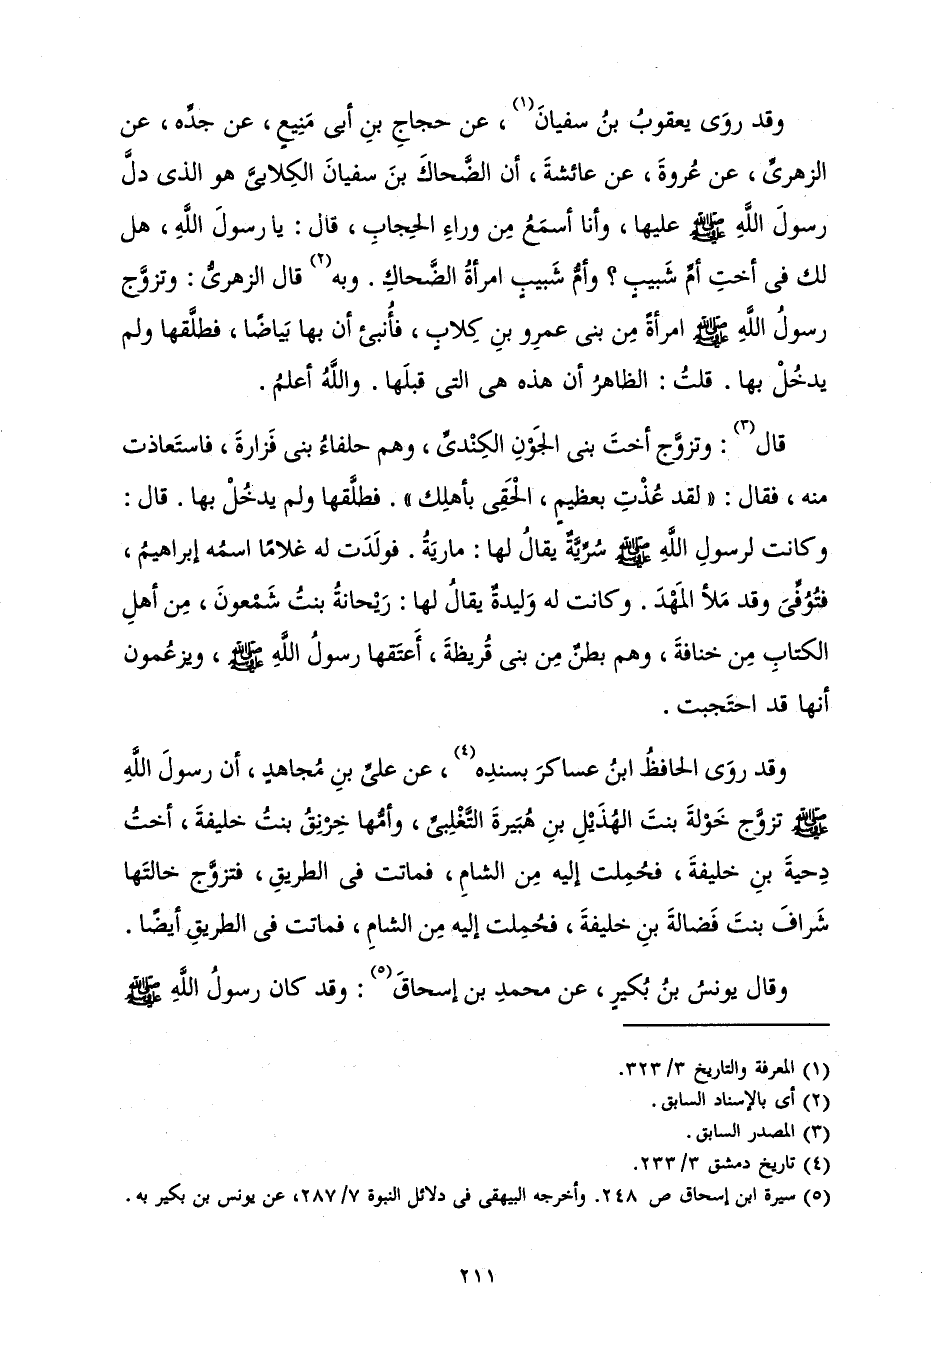 وقد روَى يعقوبُ بنُ سفيانَ(١) ، عن حجاجِ بنِ أبى مَنِيعٍ ، عن جدِّه ، عن
الزهرىِّ ، عن عُروةَ ، عن عائشةَ ، أن الضَّحاكَ بنَ سفيانَ الكِلابىَّ هو الذى دلَّ
رسولَ اللَّهِ ﷺ عليها ، وأنا أسمَعُ مِن وراءِ الحِجابِ ، قال : يا رسولَ اللَّهِ ، هل
لك فى أختِ أمِّ شَبيبٍ ؟ وأمُّ شَبيبٍ امرأةُ الضَّحاكِ . وبه(٢) قال الزهرىُّ : وتزوَّج
رسولُ اللَّهِ ﷺ امرأةً مِن بنى عمرِو بنِ كِلابٍ ، فأُنبئ أن بها بَياضًا ، فطلَّقها ولم
يدخُلْ بها . قلتُ : الظاهرُ أن هذه هى التى قبلَها . واللَّهُ أعلمُ .
قال(٣) : وتزوَّج أختَ بنى الجَوْنِ الكِندىِّ ، وهم حلفاءُ بنى فَزارةَ ، فاستَعاذت
منه ، فقال : « لقد عُذْتِ بعظيمٍ ، الْحَقِى بأهلِك » . فطلَّقها ولم يدخُلْ بها . قال :
وكانت لرسولِ اللَّهِ ﷺ سُرِّيَّةٌ يقالُ لها : ماريَةُ . فولَدَت له غلامًا اسمُه إبراهيمُ ،
فتُوُفِّىَ وقد مَلأ المَهْدَ . وكانت له وَليدةٌ يقالُ لها : رَيْحانةُ بنتُ شَمْعونَ ، مِن أهلِ
الكتابِ مِن خنافةَ ، وهم بطنٌ مِن بنى قُريظةَ ، أَعتَقها رسولُ اللَّهِ ﷺ ، ويزعُمون
أنها قد احتَجبت .
وقد روَى الحافظُ ابنُ عساكرَ بسندِه(٤) ، عن علىِّ بنِ مُجاهدٍ ، أن رسولَ اللَّهِ
ﷺ تزوَّج خَوْلةَ بنتَ الهُذَيْلِ بنِ هُبَيرةَ التَّغْلِبىِّ ، وأمُّها خِرْنِقُ بنتُ خليفةَ ، أختُ
دِحيةَ بنِ خليفةَ ، فحُمِلت إليه مِن الشامِ ، فماتت فى الطريقِ ، فتزوَّج خالتَها
شَرافَ بنتَ فَضالةَ بنِ خليفةَ ، فحُمِلت إليه مِن الشامِ ، فماتت فى الطريقِ أيضًا .
وقال يونسُ بنُ بُكيرٍ ، عن محمدِ بن إسحاقَ(٥) : وقد كان رسولُ اللَّهِ ﷺ
(١) المعرفة والتاريخ ٣/ ٣٢٣.
(٢) أى بالإسناد السابق .
(٣) المصدر السابق .
(٤) تاريخ دمشق ٣/ ٢٣٣.
(٥) سيرة ابن إسحاق ص ٢٤٨. وأخرجه البيهقى فى دلائل النبوة ٧/ ٢٨٧، عن يونس بن بكير به .
٢١١